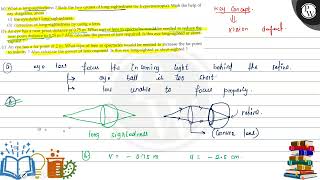 (a) What is longsightedness? List the two causes of longsightedness (or hypermetropia). Draw the ray diagrams, show
(i) the eye-defect longsightedness.
(ii) correction of
(b) An eye has a near point of 0.75 m. What sort of lens in spectacles would be needed to reduce the near point distance to 0.25 m? Also calculate the power of lens required. Is this eye long-sighted or short-sighted?
(c) An eye has a far point of 2 m. What type of lens in spectacles would be needed to increase the far point to infinity? Also calculate the power of lens required. Is this eye long-sighted or short-sighted?
Key concept
vision defect.
(a) eye lens focus the incoming light behind the retina.
eye ball is too short.
lens unable to focus properly.
retina.
long sightedness
(convex lens)
(b) v = - 0.75 m u = - 25 cm